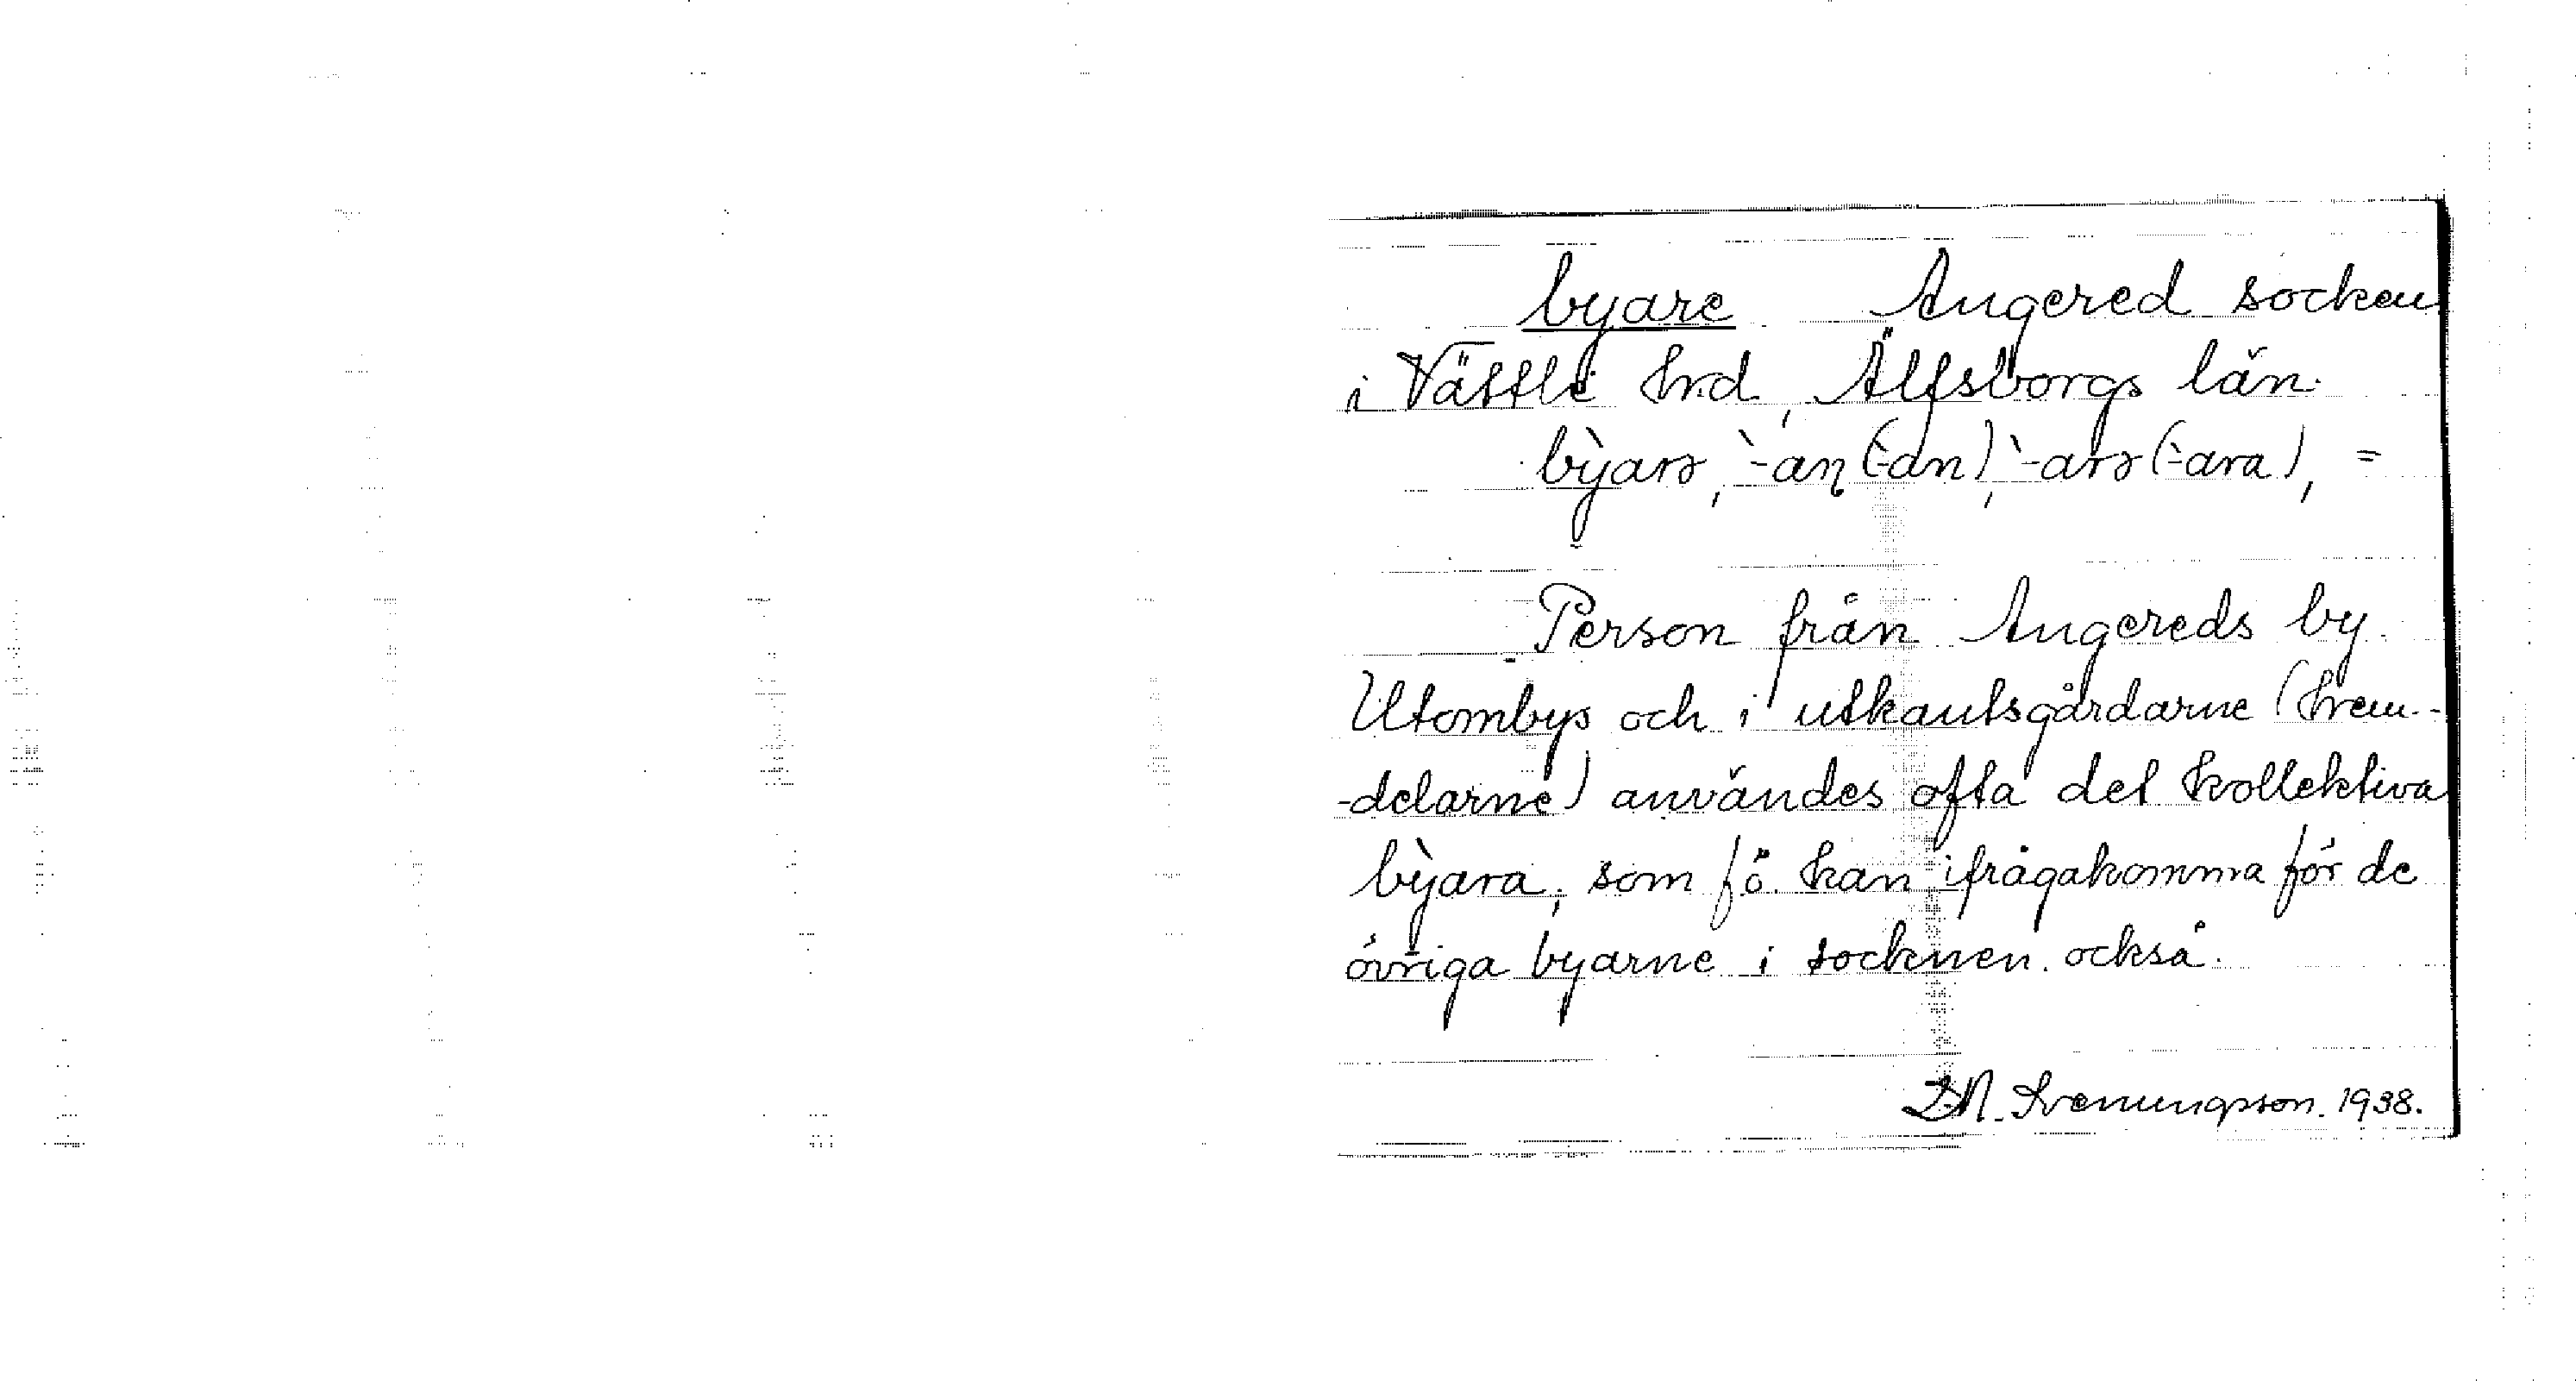 byare Angered socken
i Vättle hrd, Älfsborgs län.
by̆̀arə, `-aṇ (`-an), `-arə (`-ara), =
Person från Angereds by.
Utombys och i utkantsgårdarne (hem-
-delarne) användes ofta det kollektiva
bỳara, som fö. kan ifrågakomma för de
övriga byarne i socknen också.
Svenungsson. 1938.